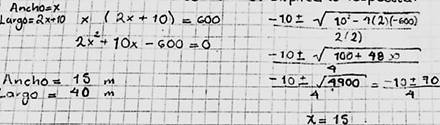 Ancho=x
Largo=2x+10 x (2x+10) = 600
2x²+10x-600=0
Ancho = 15 m
Largo = 40 m
-10 ± √10²-4(2)(-600)
2(2)
-10 ± √100+48
4
-10 ± √4900 = -10 ± 70
4 4
x = 15